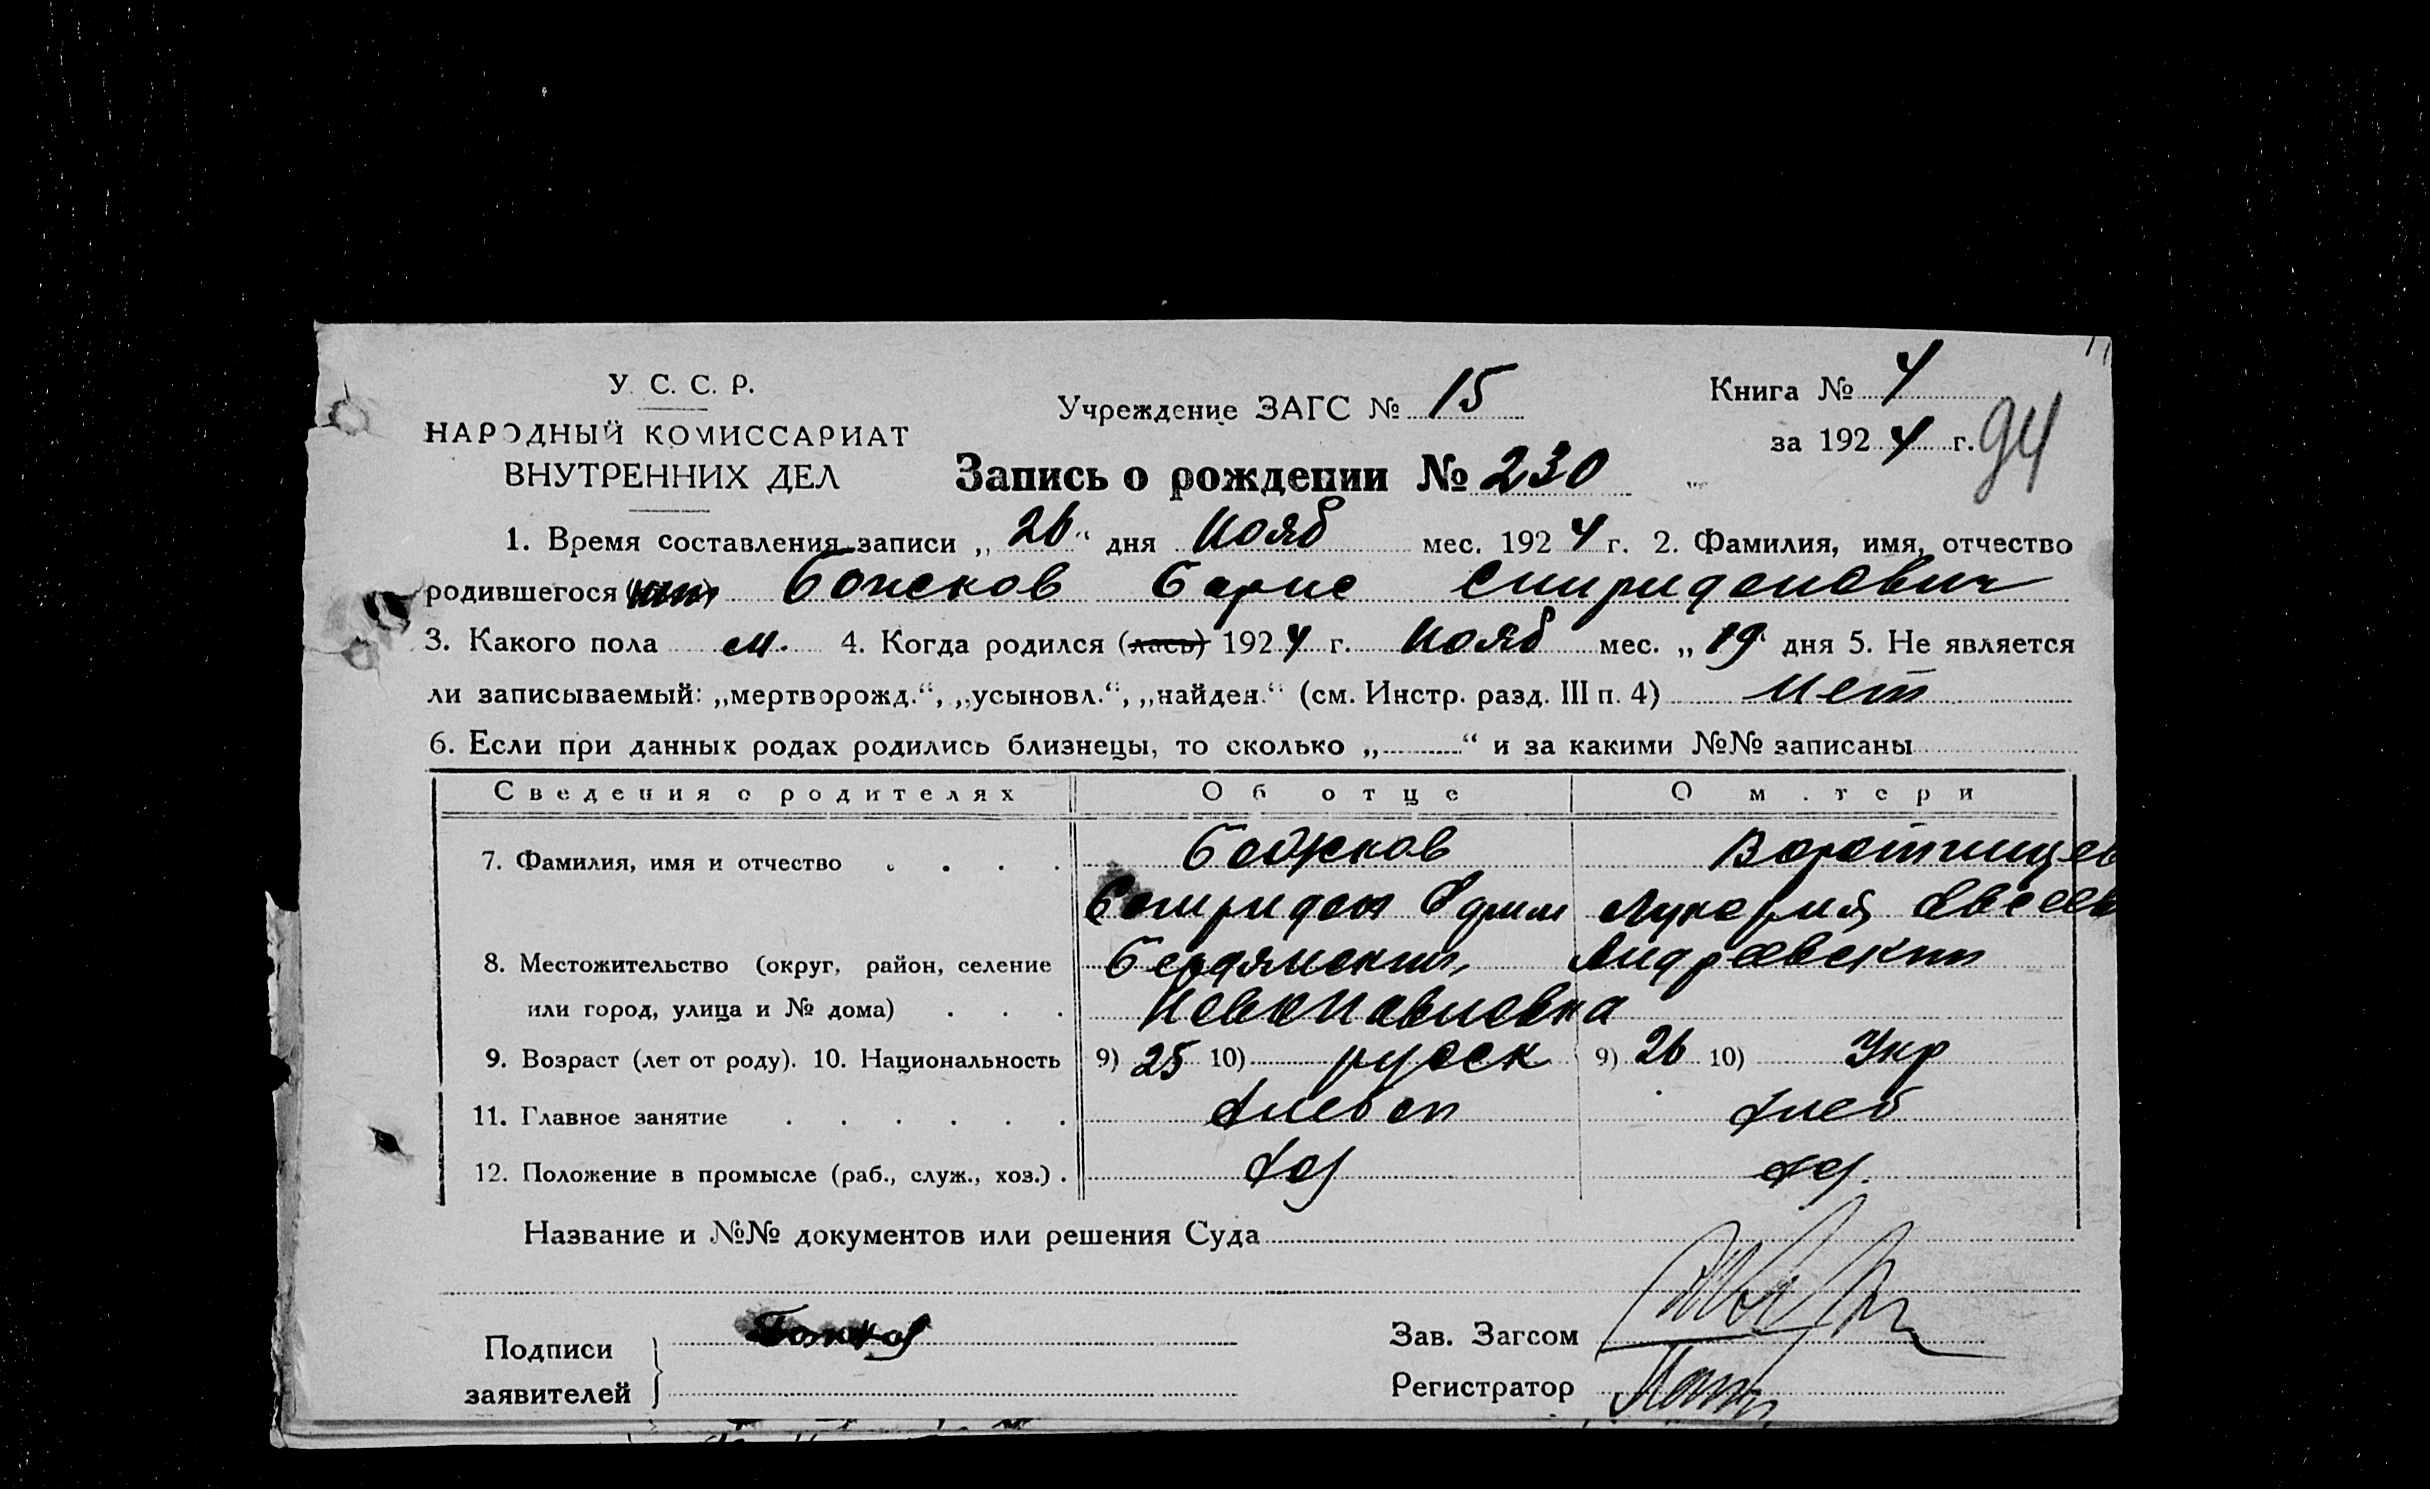 У. С. С. Р.
НАРОДНЫЙ КОМИССАРИАТ
ВНУТРЕННИХ ДЕЛ
Учреждение ЗАГС № 15
Книга № 4
за 1924 г. 94
Запись о рождении № 230
1. Время составления записи „26“ дня Нояб мес. 1924 г. 2. Фамилия, имя, отчество
родившегося Божков Борис Спиридонович
3. Какого пола м. 4. Когда родился (лась) 1924 г. Нояб мес. „19“ дня 5. Не является
ли записываемый: „мертворожд.“, „усыновл.“, „найден.“ (см. Инстр. разд. III п. 4) Нет
6. Если при данных родах родились близнецы, то сколько „ “ и за какими №№ записаны
Сведения о родителях Об отце О матери
7. Фамилия, имя и отчество Божков
Спиридон
8. Местожительство (округ, район, селение Бердянский, Андреевский
или город, улица и № дома) Новопавловка
9. Возраст (лет от роду). 10. Национальность 9) 25 10) русск 9) 26 10) Укр
11. Главное занятие Хлебоп Хлеб
12. Положение в промысле (раб., служ., хоз.) Хоз Хоз.
Название и №№ документов или решения Суда
Подписи
заявителей
Божков
Зав. Загсом
Регистратор